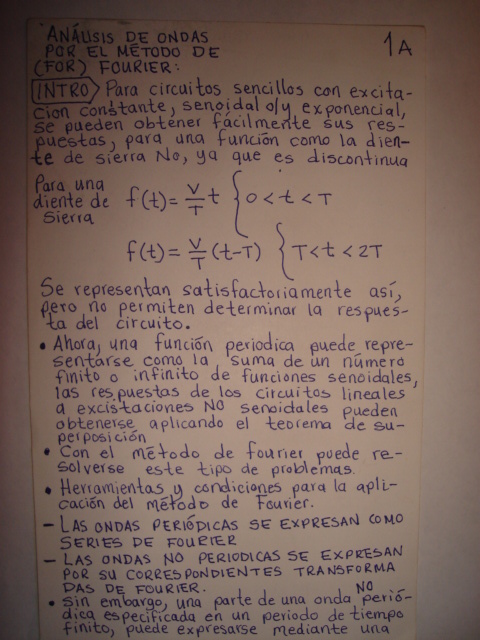 ANÁLISIS DE ONDAS
POR EL MÉTODO DE
(FOR) FOURIER:
1A
INTRO Para circuitos sencillos con excita-
cion constante, senoidal o/y exponencial,
se pueden obtener fácilmente sus res-
puestas, para una función como la dien-
te de sierra No, ya que es discontinua
Para una
diente de
Sierra
f(t) = V/T t { 0 < t < T
f(t) = V/T (t-T) { T < t < 2T
Se representan satisfactoriamente así,
pero no permiten determinar la respues-
ta del circuito.
• Ahora, una función periodica puede repre-
sentarse como la suma de un número
finito o infinito de funciones senoidales,
las respuestas de los circuitos lineales
a excistaciones NO senoidales pueden
obtenerse aplicando el teorema de su-
perposición
• Con el método de fourier puede re-
solverse este tipo de problemas.
• Herramientas y condiciones para la apli-
cación del método de Fourier.
- LAS ONDAS PERIÓDICAS SE EXPRESAN COMO
SERIES DE FOURIER
- LAS ONDAS NO PERIODICAS SE EXPRESAN
POR SU CORRESPONDIENTES TRANSFORMA
DAS DE FOURIER.
• Sin embargo, una parte de una onda NO perió-
dica especificada en un periodo de tiempo
finito, puede expresarse mediante una